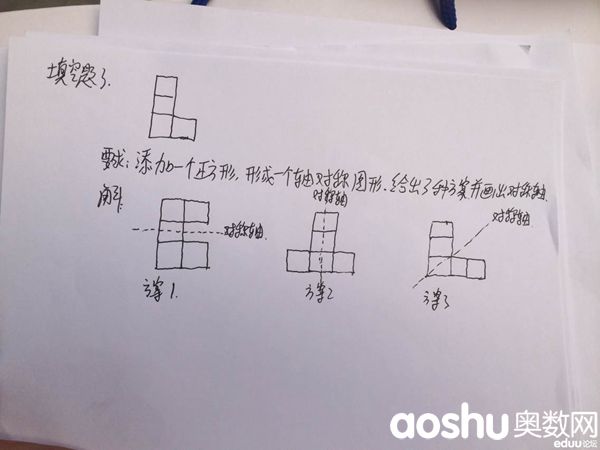 填空题3.
要求:添加一个正方形,形成一个轴对称图形,给出3种方案并画出对称轴.
解:
对称轴
对称轴
对称轴
方案1.
方案2
方案3
aoshu奥数网
eduu论坛